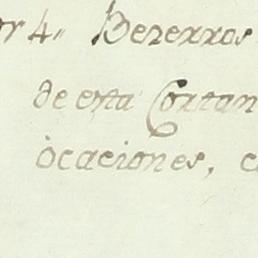 or 4" Bezerros
de esta Cortan
ocaciones, c